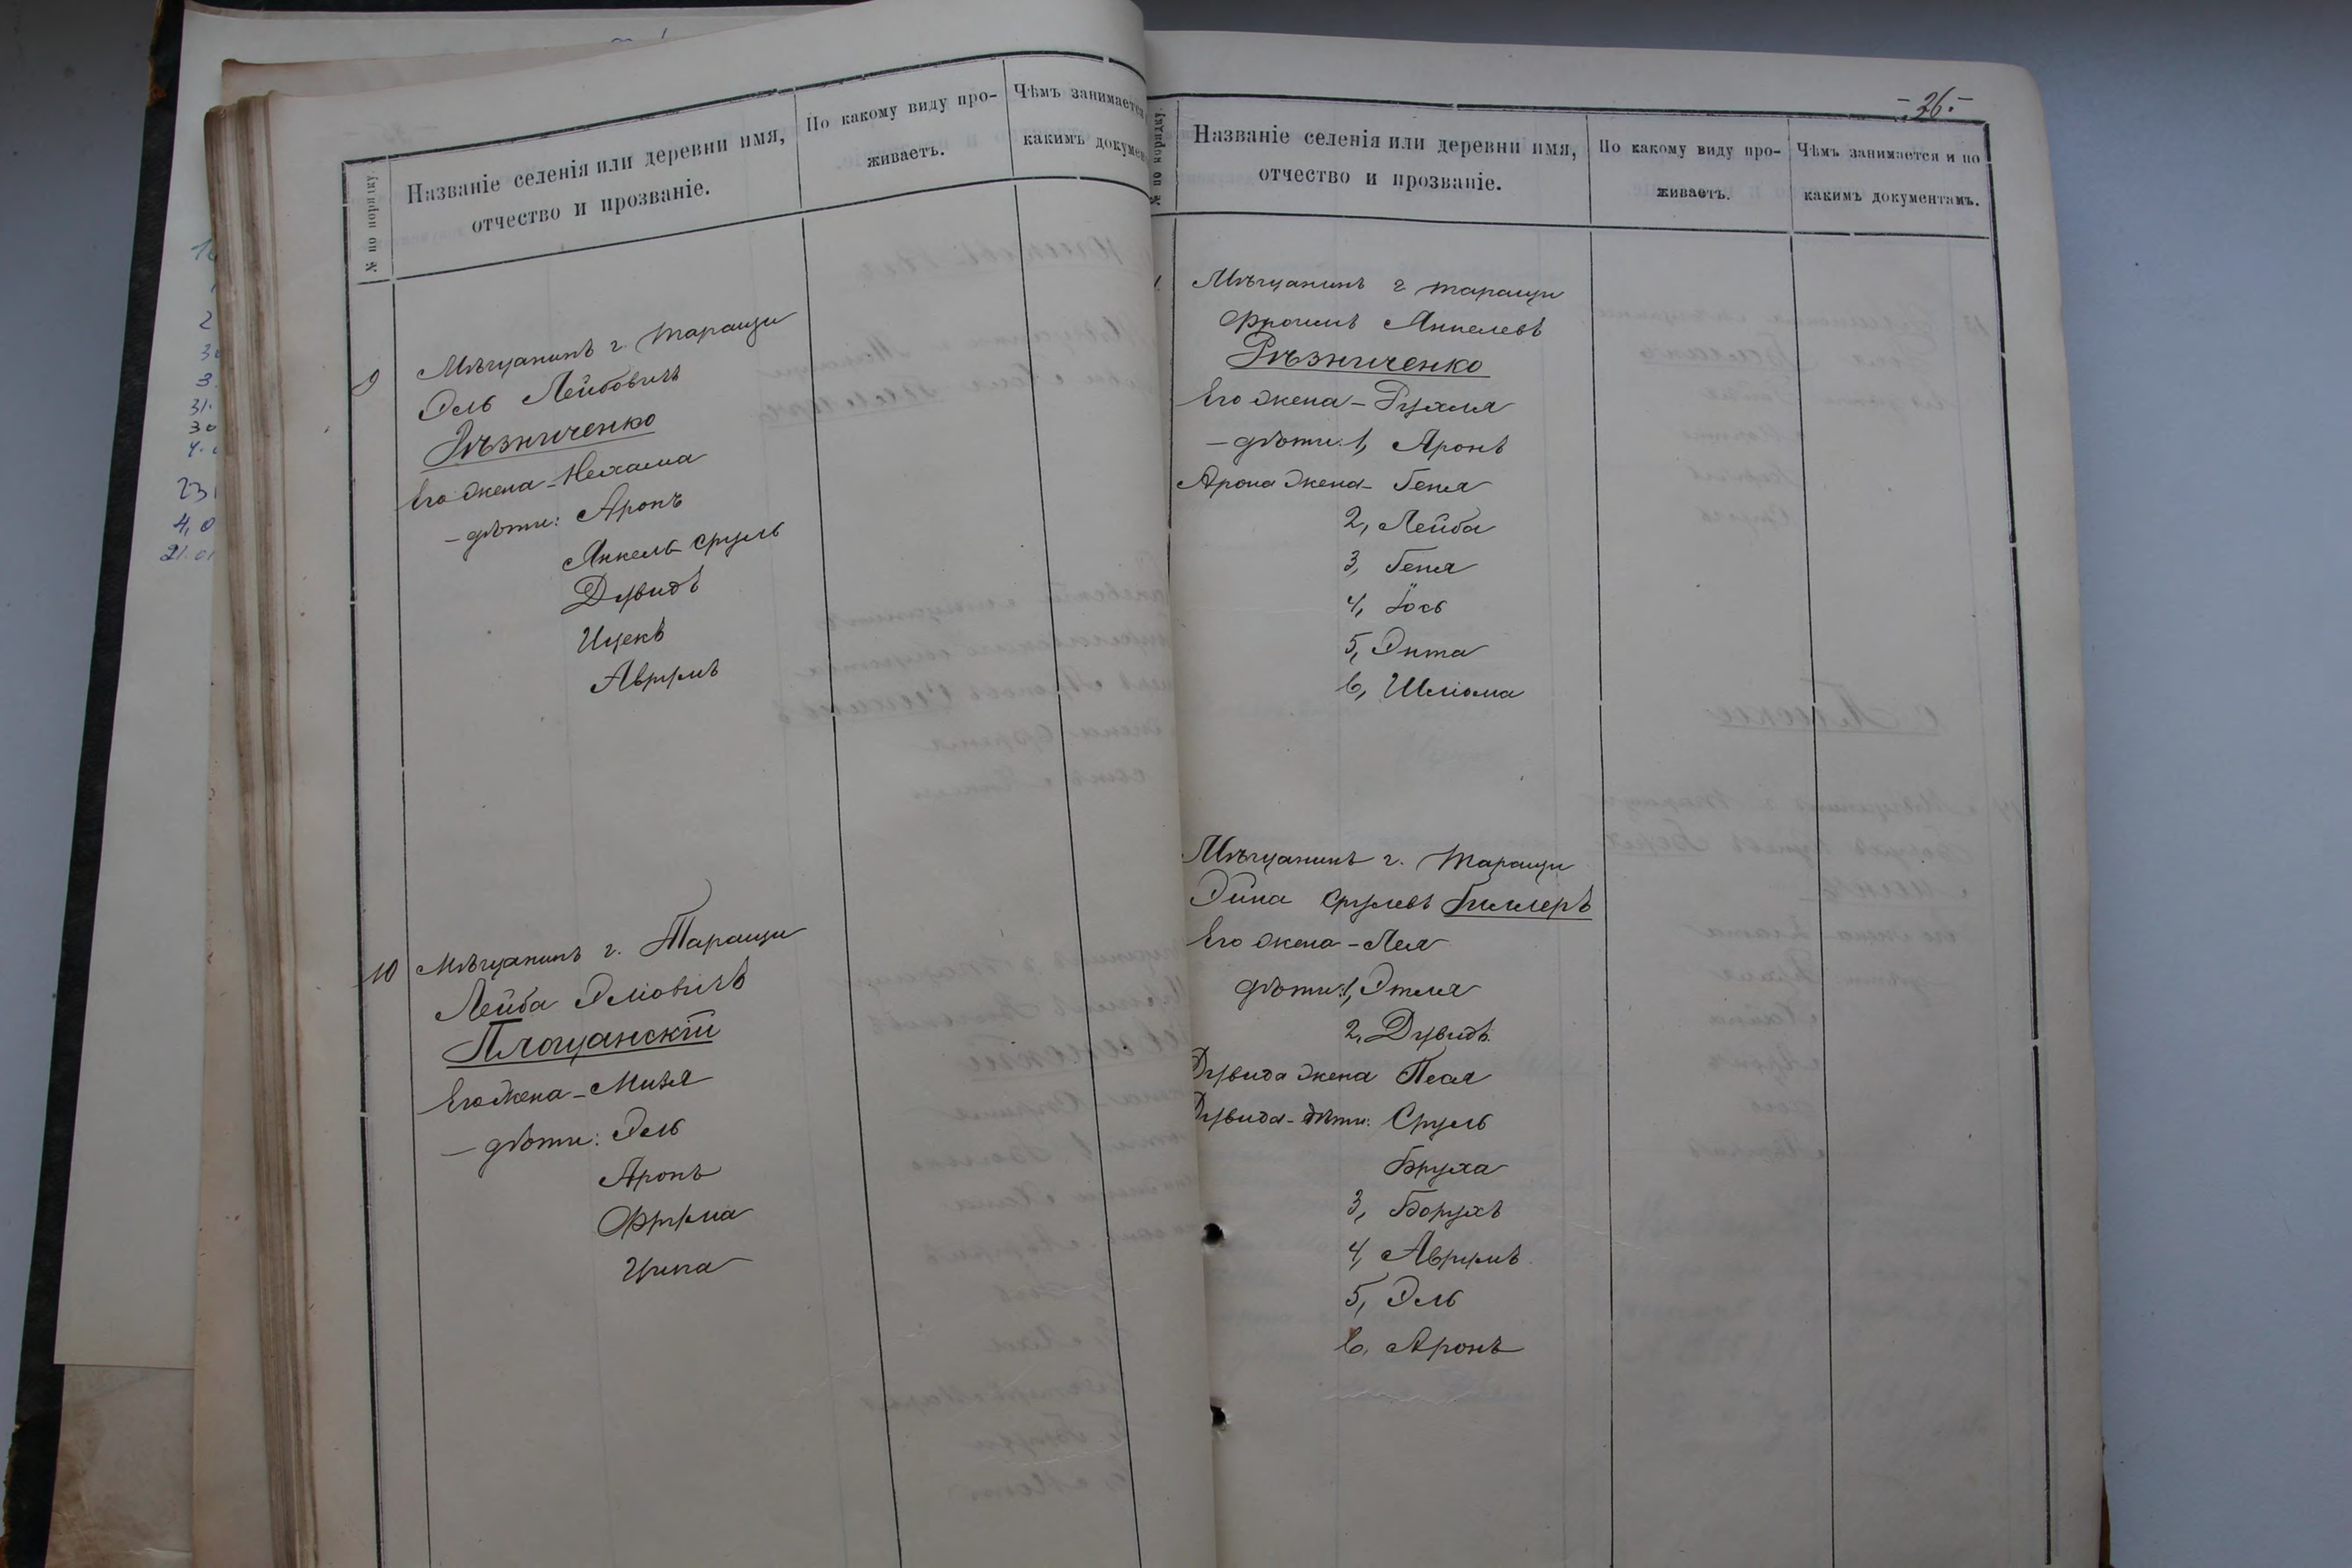 № по порядку.
Названіе селенія или деревни имя,
отчество и прозваніе.
По какому виду про-
живаетъ.
Чѣмъ занимается
какимъ докумен
9
Мѣщанинъ г. Таращи
Эль Лейбовичъ
Рѣзниченко
Его жена - Нехама
- дѣти: Аронъ
Янкель-Сруль
Дувидъ
Ицекъ
Аврумъ
10
Мѣщанинъ г. Таращи
Лейба Эліовичъ
Площанскій
Его жена - Мизя
- дѣти: Эль
Аронъ
Фрума
Ципа
- 26 -
№ по порядку.
Названіе селенія или деревни имя,
отчество и прозваніе.
По какому виду про-
живаетъ.
Чѣмъ занимается и по
какимъ документамъ.
Мѣщанинъ г. Таращи
Фроимъ Янкелевъ
Рѣзниченко
Его жена - Рухля
- дѣти: 1, Аронъ
Арона жена - Геня
2, Лейба
3, Геня
4, Іось
5, Энта
6, Шліома
Мѣщанинъ г. Таращи
Эйна Срулевъ
Его жена - Лея
дѣти: 1, Этля
2, Дувидъ
Дувида жена Песя
Дувида - дѣти: Сруль
Бруха
3, Борухъ
4, Аврумъ
5, Эль
6, Аронъ